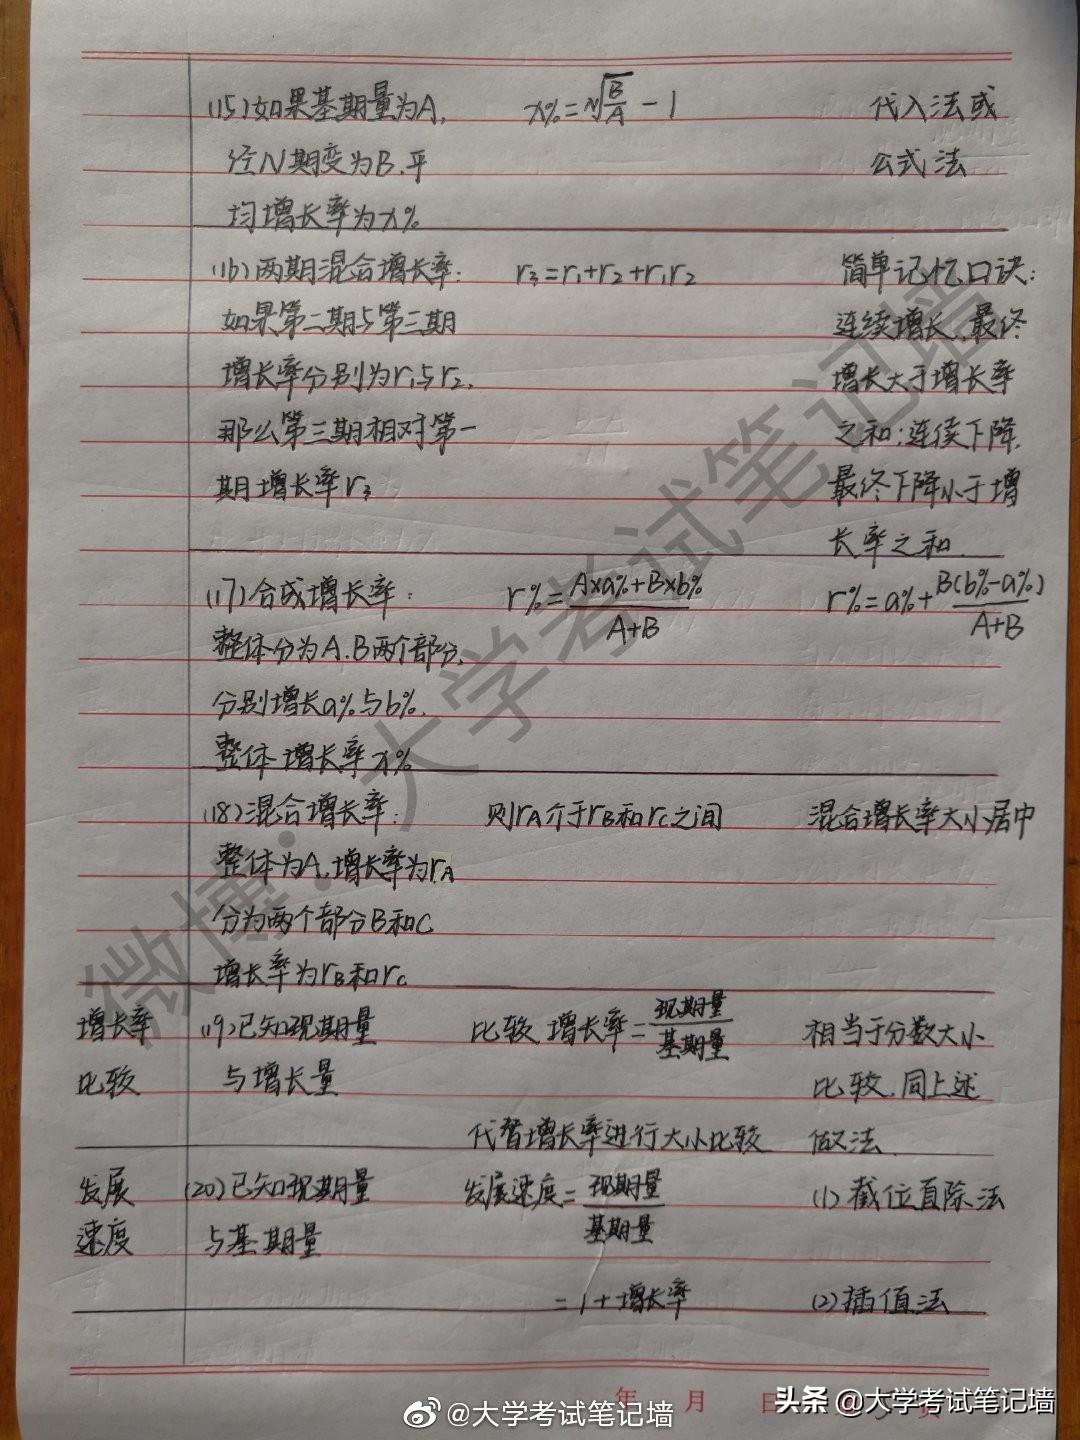 (15)如果基期量为A, x%=ᴺ√(B/A)-1 代入法或
经N期变为B.平 公式法
均增长率为x%
(16)两期混合增长率: r₃=r₁+r₂+r₁r₂ 简单记忆口诀:
如果第二期与第三期 连续增长,最终
增长率分别为r₁与r₂, 增长大于增长率
那么第三期相对第一 之和;连续下降,
期增长率r₃ 最终下降小于增
长率之和.
(17)合成增长率: r%=(A×a%+B×b%)/(A+B) r%=a%+B(b%-a%)/(A+B)
整体分为A.B两个部分,
分别增长a%与b%,
整体增长率x%
(18)混合增长率: 则rA介于rB和rC之间 混合增长率大小居中
整体为A,增长率为rA
分为两个部分B和C
增长率为rB和rC
增长率 (19)已知现期量 比较增长率=现期量/基期量 相当于分数大小
比较 与增长量 比较,同上述
代替增长率进行大小比较 做法.
发展 (20)已知现期量 发展速度=现期量/基期量 (1)截位直除法
速度 与基期量
=1+增长率 (2)插值法
年 月 日
微博:大学考试笔记墙
@大学考试笔记墙
头条@大学考试笔记墙